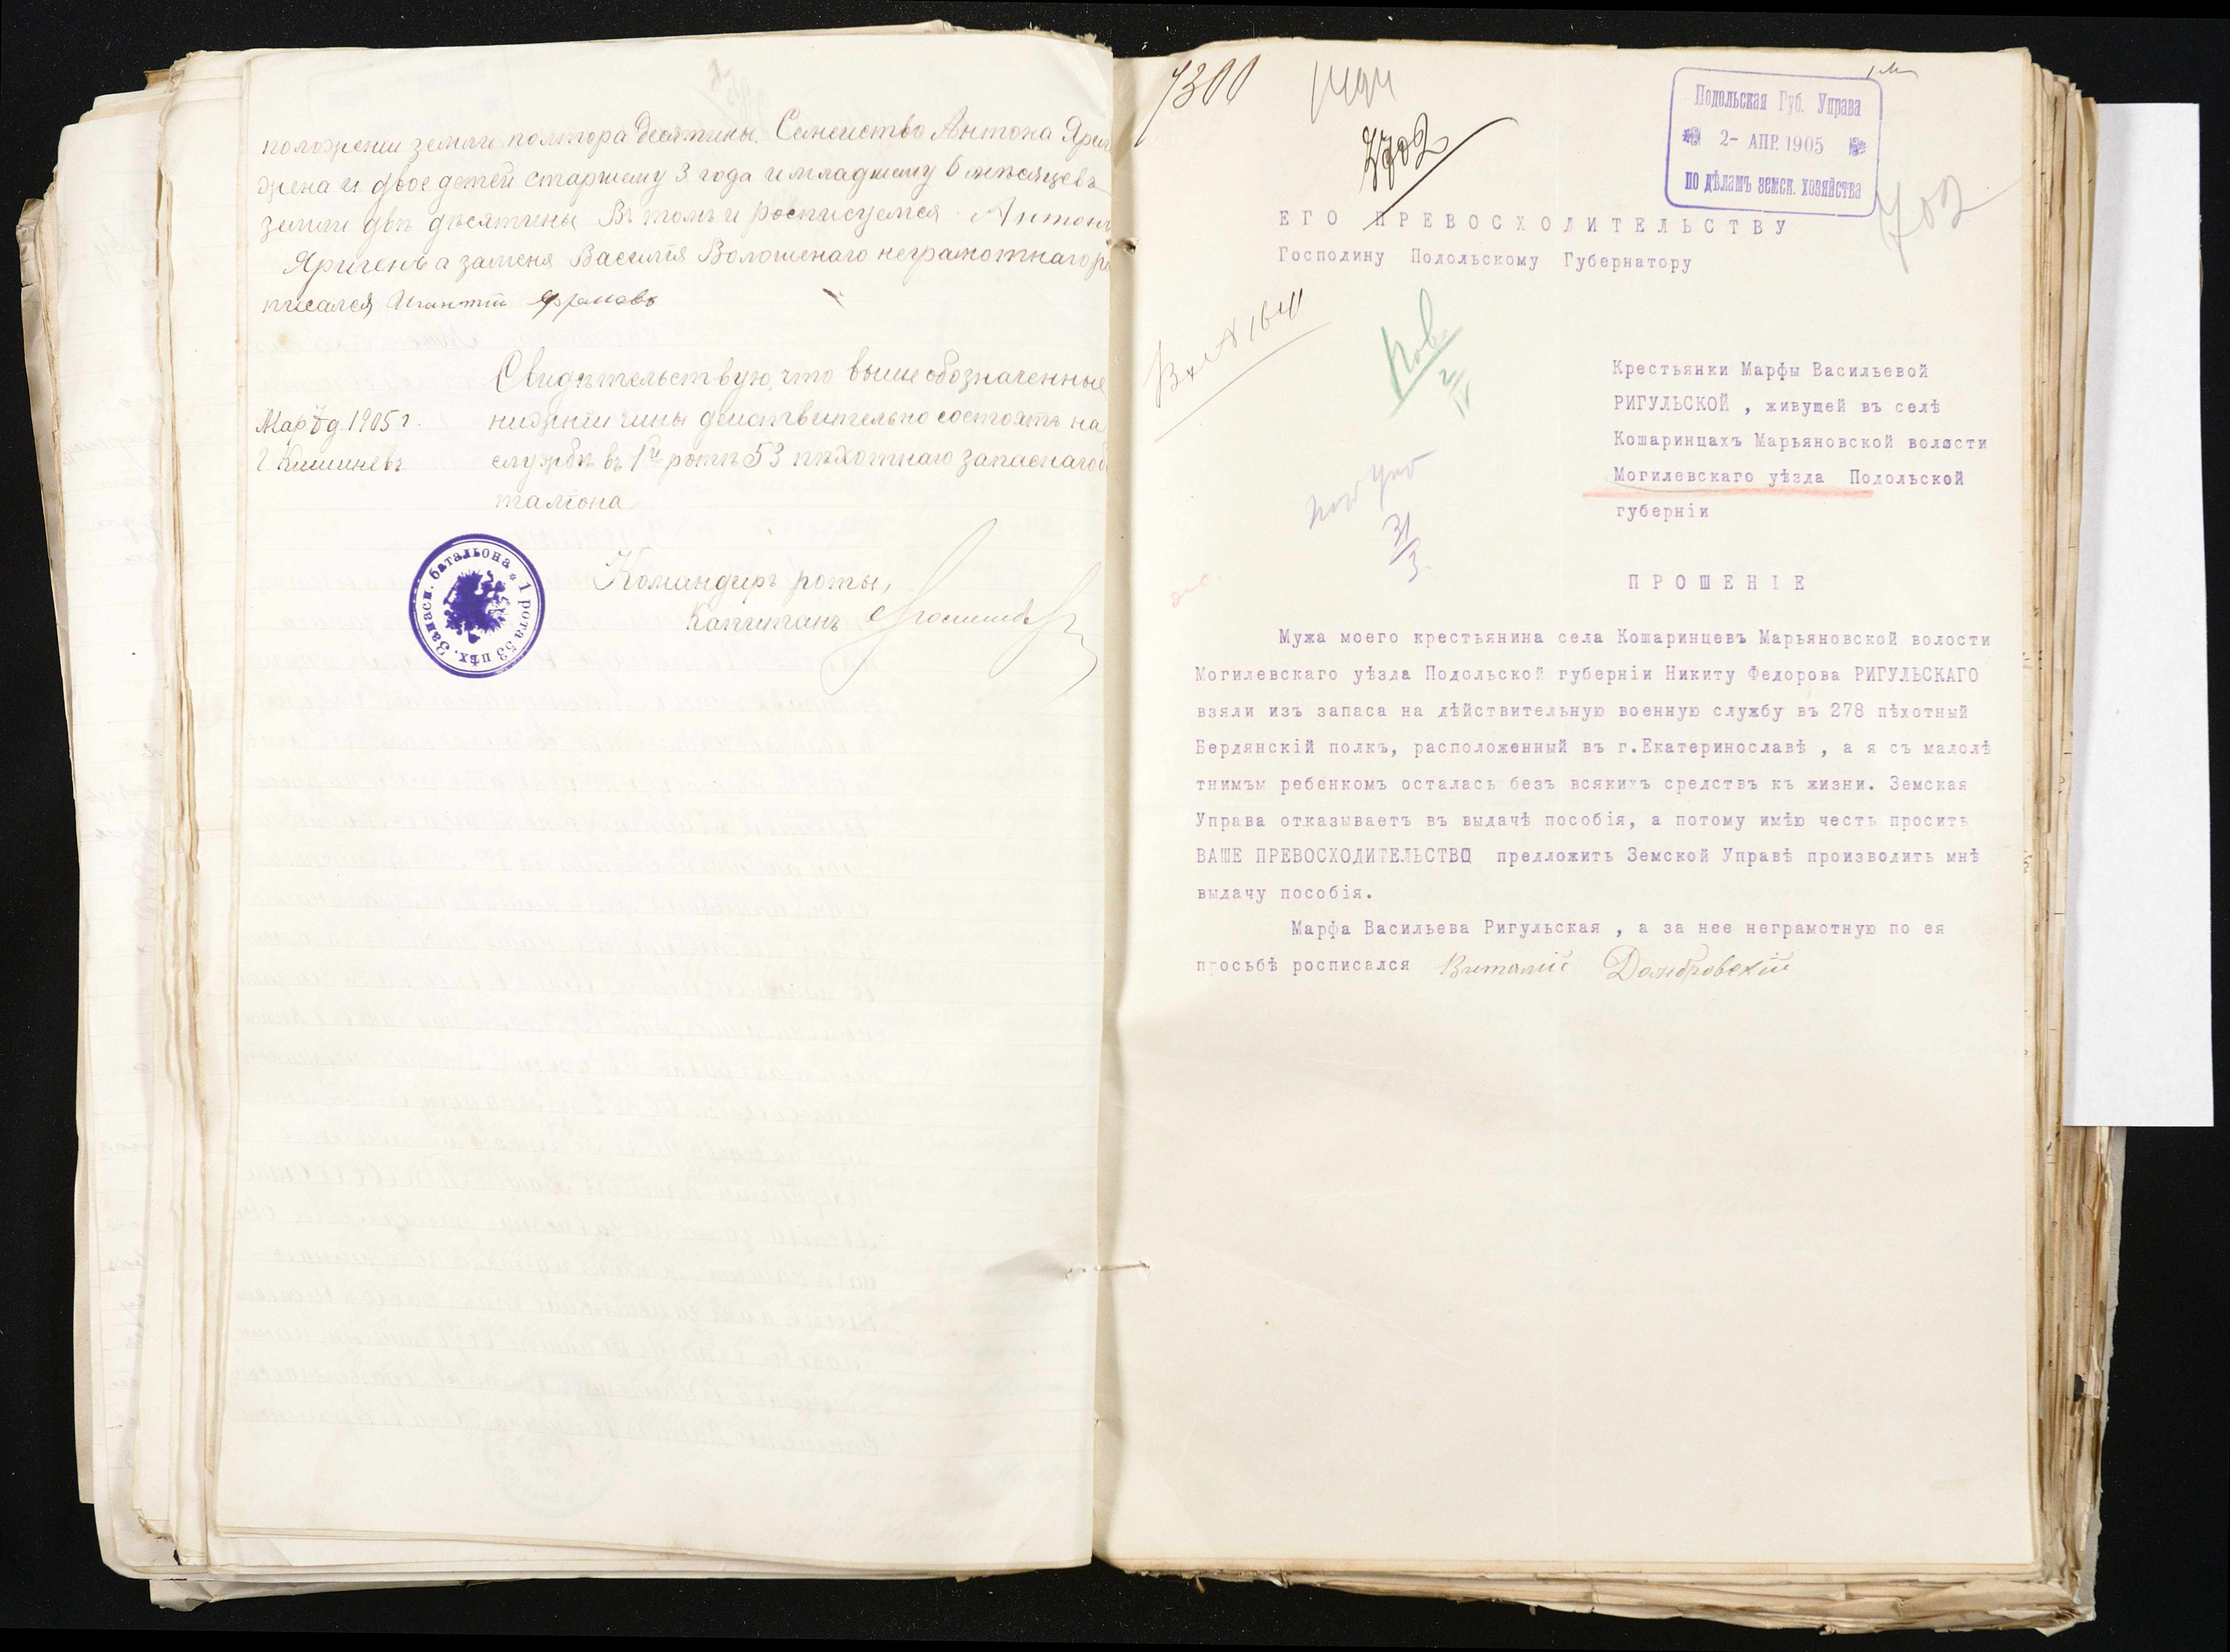 положении земли полтора десятины. Семейство Антона
жена и двое детей старшему 3 года и младшему 6 месяцевъ
земли двѣ дѣсятины Въ томъ и росписуемся Антонъ
Яригенъ а заменя Василія Волошенаго неграмотнаго
писался
Свидѣтельствую, что выше обозначенные
нижніи чины деиствительно состоятъ на
службѣ въ 1й ротѣ 53 пѣхотнаго запаснаго
таліона
Мар д. 1905 г.
г. Кишиневъ
Командиръ роты,
Капитанъ
1 рота 53 пѣх. Запасн. баталіона
7300
7702
Подольская Губ. Управа
2- АПР. 1905
по дѣламъ земск. хозяйства
702
ЕГО ПРЕВОСХОДИТЕЛЬСТВУ
Господину Подольскому Губернатору
Вх № 1641
2/IV
31/3
Крестьянки Марфы Васильевой
РИГУЛЬСКОЙ , живущей въ селѣ
Кошаринцахъ Марьяновской волости
Могилевскаго уѣзда Подольской
губерніи
ПРОШЕНІЕ
Мужа моего крестьянина села Кошаринцевъ Марьяновской волости
Могилевскаго уѣзда Подольской губерніи Никиту Федорова РИГУЛЬСКАГО
взяли изъ запаса на дѣйствительную военную службу въ 278 пѣхотный
Бердянскій полкъ, расположенный въ г.Екатеринославѣ , а я съ малолѣ
тнимъм ребенкомъ осталась безъ всякихъ средствъ къ жизни. Земская
Управа отказываетъ въ выдачѣ пособія, а потому имѣю честь просить
ВАШЕ ПРЕВОСХОДИТЕЛЬСТВО предложить Земской Управѣ производить мнѣ
выдачу пособія.
Марфа Васильева Ригульская , а за нее неграмотную по ея
просьбѣ росписался Виталій Домбровскій